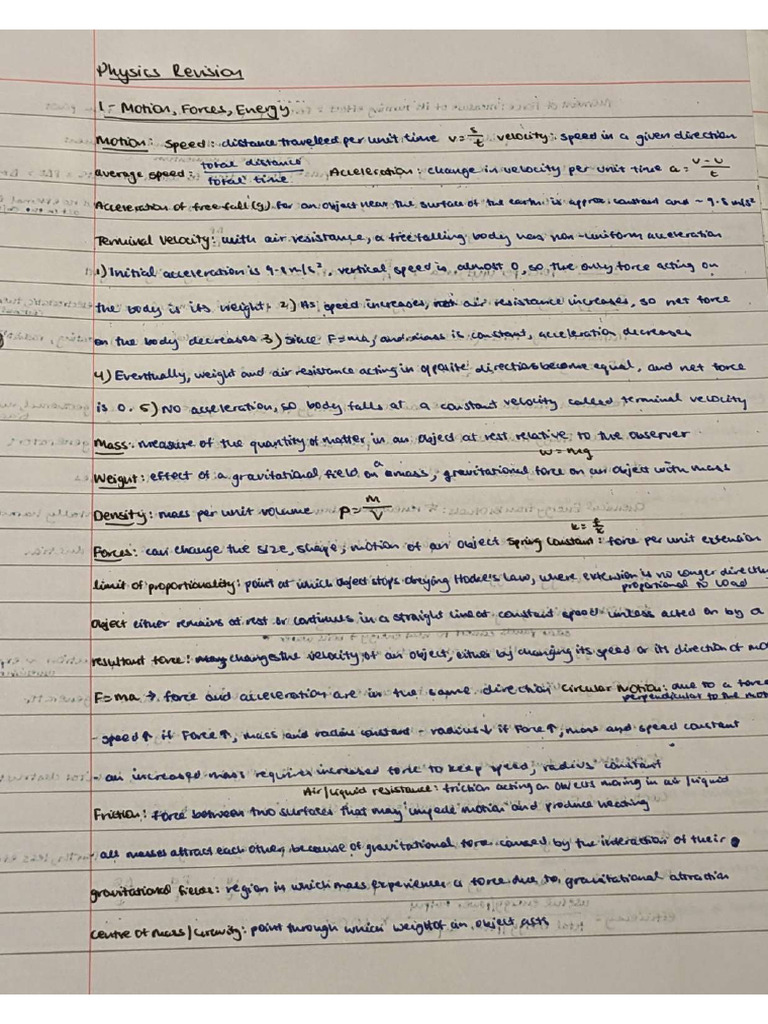 Physics Revision
1 - Motion, Forces, Energy
Motion: Speed: distance travelled per unit time v = s/t velocity: speed in a given direction
average speed: total distance/total time Acceleration: change in velocity per unit time a = v-u/t
Acceleration of free fall (g) for an object near the surface of the earth is approx. constant and ~ 9.8 m/s²
Terminal Velocity: with air resistance, a free falling body has non-uniform acceleration
1) Initial acceleration is 9.8 m/s², vertical speed is almost 0, so the only force acting on
the body is its weight. 2) As speed increases, air resistance increases, so net force
on the body decreases 3) Since F=ma, and mass is constant, acceleration decreases
4) Eventually, weight and air resistance acting in opposite directions become equal, and net force
is 0. 5) No acceleration, so body falls at a constant velocity called terminal velocity
Mass: measure of the quantity of matter in an object at rest relative to the observer
W = mg
Weight: effect of a gravitational field on a mass, gravitational force on an object with mass
Density: mass per unit volume ρ = m/V
k = F/x
Forces: can change the size, shape, motion of an object Spring Constant: force per unit extension
limit of proportionality: point at which object stops obeying Hooke's Law, where extension is no longer directly
proportional to load
object either remains at rest or continues in a straight line at constant speed unless acted on by a
resultant force: changes the velocity of an object, either by changing its speed or its direction of
F=ma → force and acceleration are in the same direction Circular Motion: due to a force
perpendicular to the
- speed ↑ if Force ↑, mass and radius constant - radius ↓ if Force ↑, mass and speed constant
- an increased mass requires increased force to keep speed, radius constant
Air/Liquid resistance: friction acting on objects moving in air/liquid
Friction: force between two surfaces that may impede motion and produce heating
- all masses attract each other, because of gravitational force caused by the interaction of their
gravitational fields: region in which mass experiences a force due to gravitational attraction
centre of mass/Gravity: point through which weight of an object acts